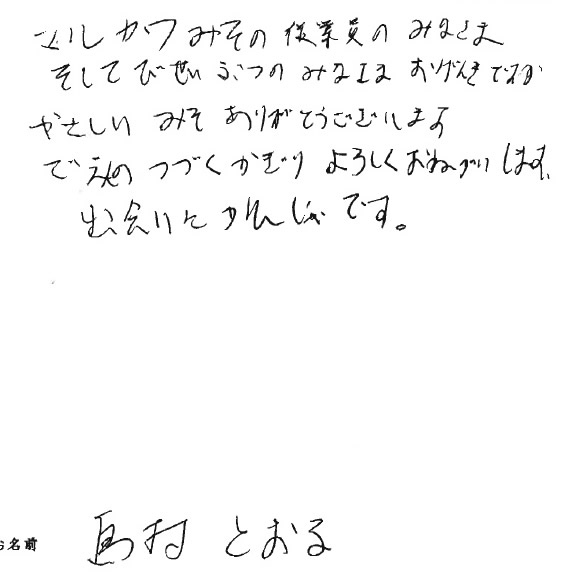 マルカワみその従業員のみなさま
そしてびせいぶつのみなさまおげんきですか
やさしいみそありがとうございます
でんきのつづくかぎりよろしくおねがいします。
出会いにかんしゃです。
お名前 島村とおる